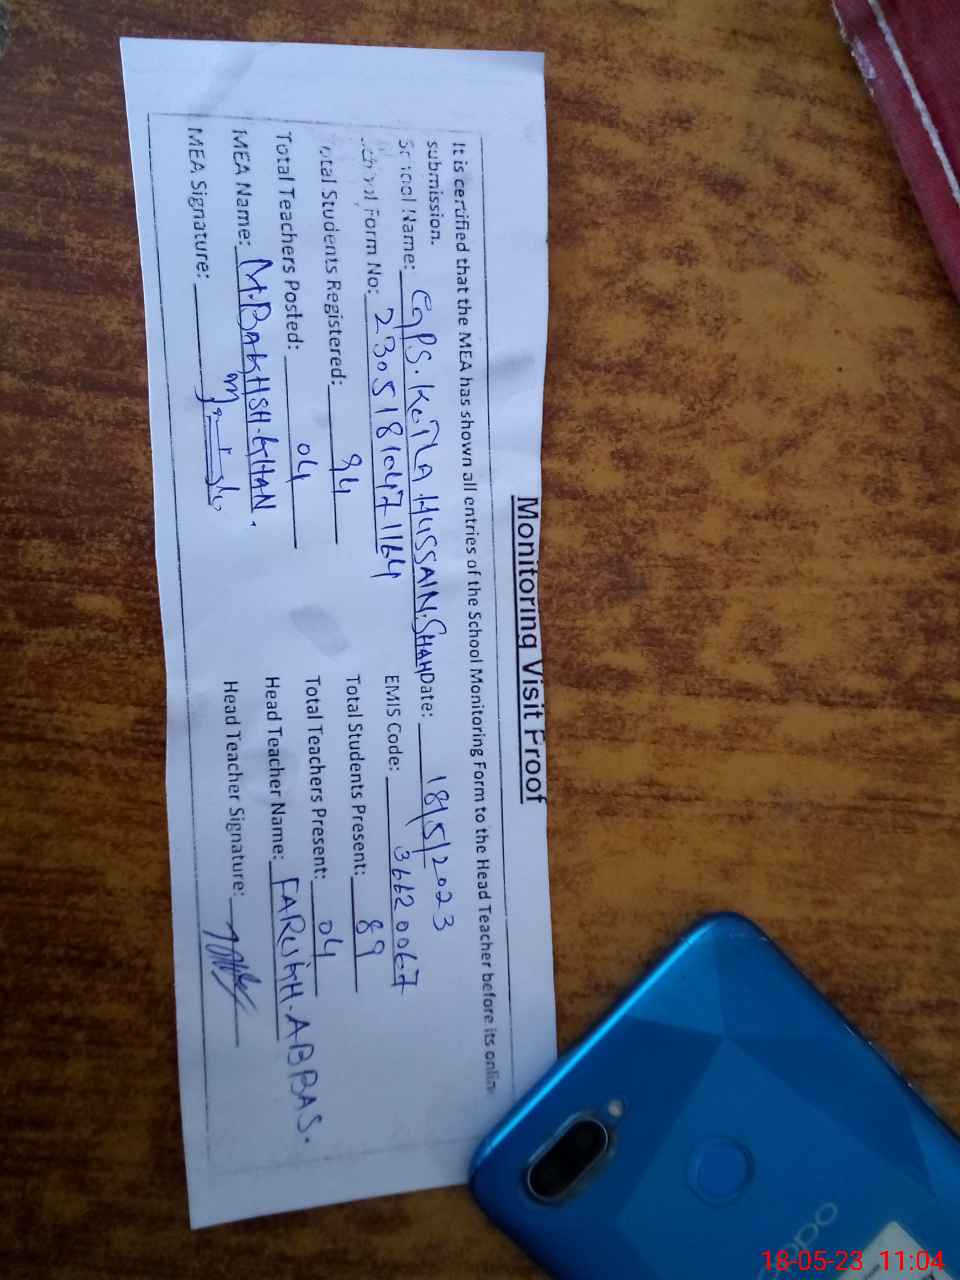 Monitoring Visit Proof
It is certified that the MEA has shown all entries of the School Monitoring Form to the Head Teacher before its online
submission.
School Name: GPS. KOTLA HUSSAIN. SHAH Date: 18/5/2023
School Form No: 23051810471164 EMIS Code: 36620067
Total Students Registered: 94 Total Students Present: 89
Total Teachers Posted: 04 Total Teachers Present: 04
MEA Name: M. BAKHSH. KHAN. Head Teacher Name: FARUKH. ABBAS.
MEA Signature: Head Teacher Signature:
oppo
18-05-23 11:04